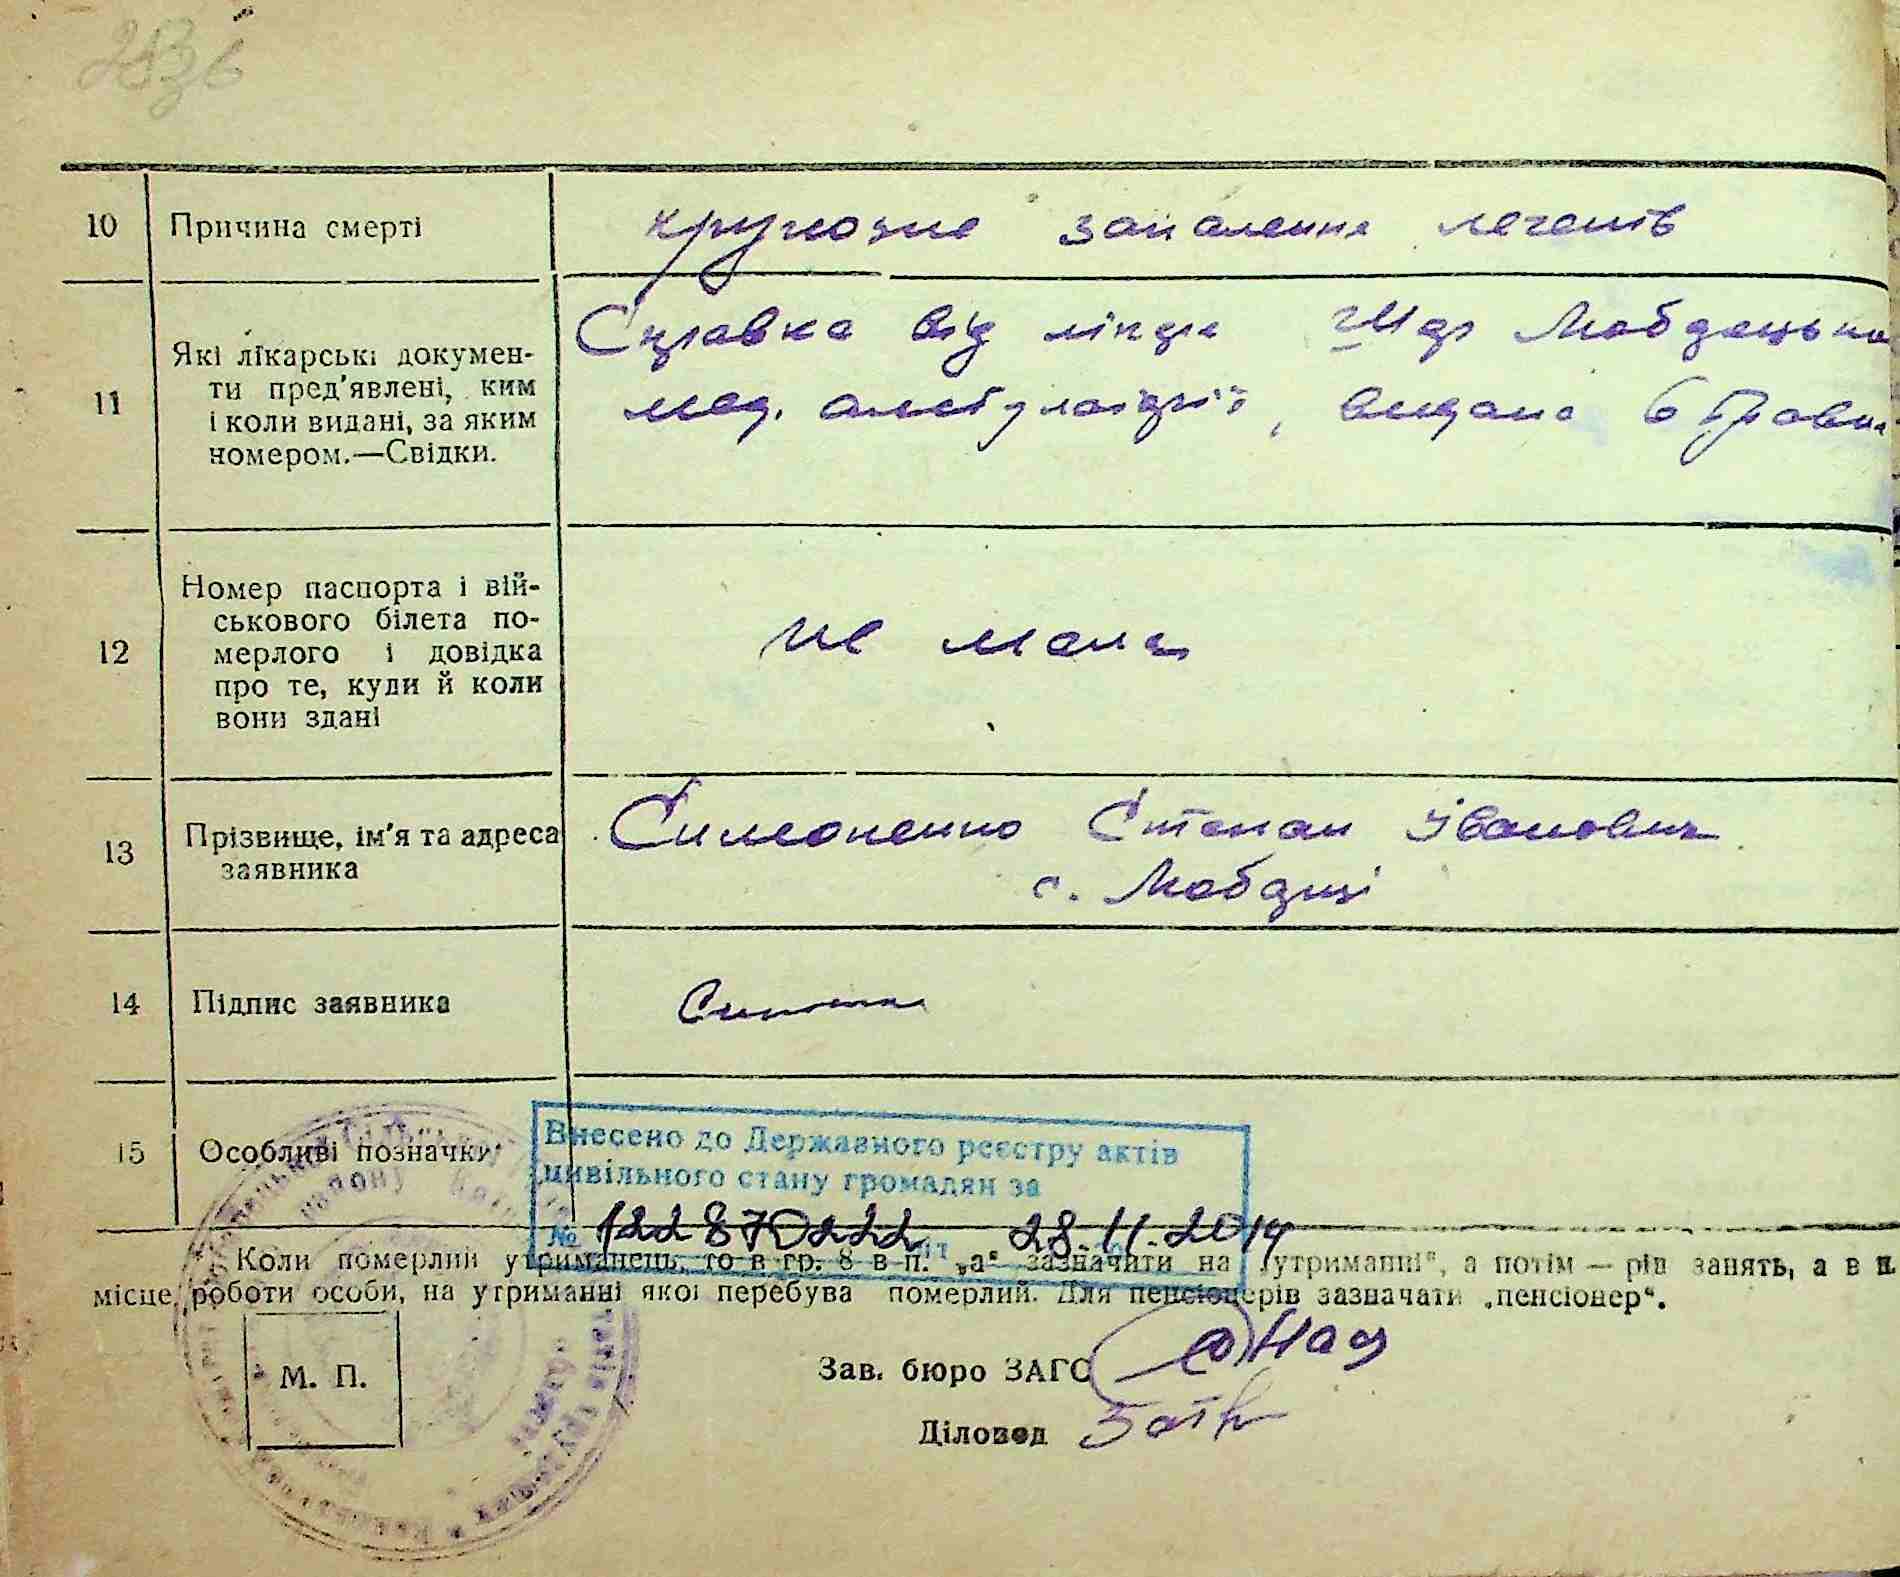 10 Причина смерті крупозне запалення легенів
11 Які лікарські докумен-
ти пред'явлені, ким
і коли видані, за яким
номером.—Свідки.
Справка від лікаря
мед. амбулаторії, видана 6 травня
12 Номер паспорта і вій-
ськового білета по-
мерлого і довідка
про те, куди й коли
вони здані
не мала
13 Прізвище, ім'я та адреса
заявника
Симоненко Степан Іванович
с.
14 Підпис заявника
15 Особливі позначки
Внесено до Державного реєстру актів
цивільного стану громадян за
№ 122870222 28.11.2014
Коли померлий утриманець, то в гр. 8 в п. „а“ зазначити на „утриманні“, а потім — рід занять, а в п.
місце роботи особи, на утриманні якої перебував померлий. Для пенсіонерів зазначати „пенсіонер“.
М. П.
Зав. бюро ЗАГС
Діловод